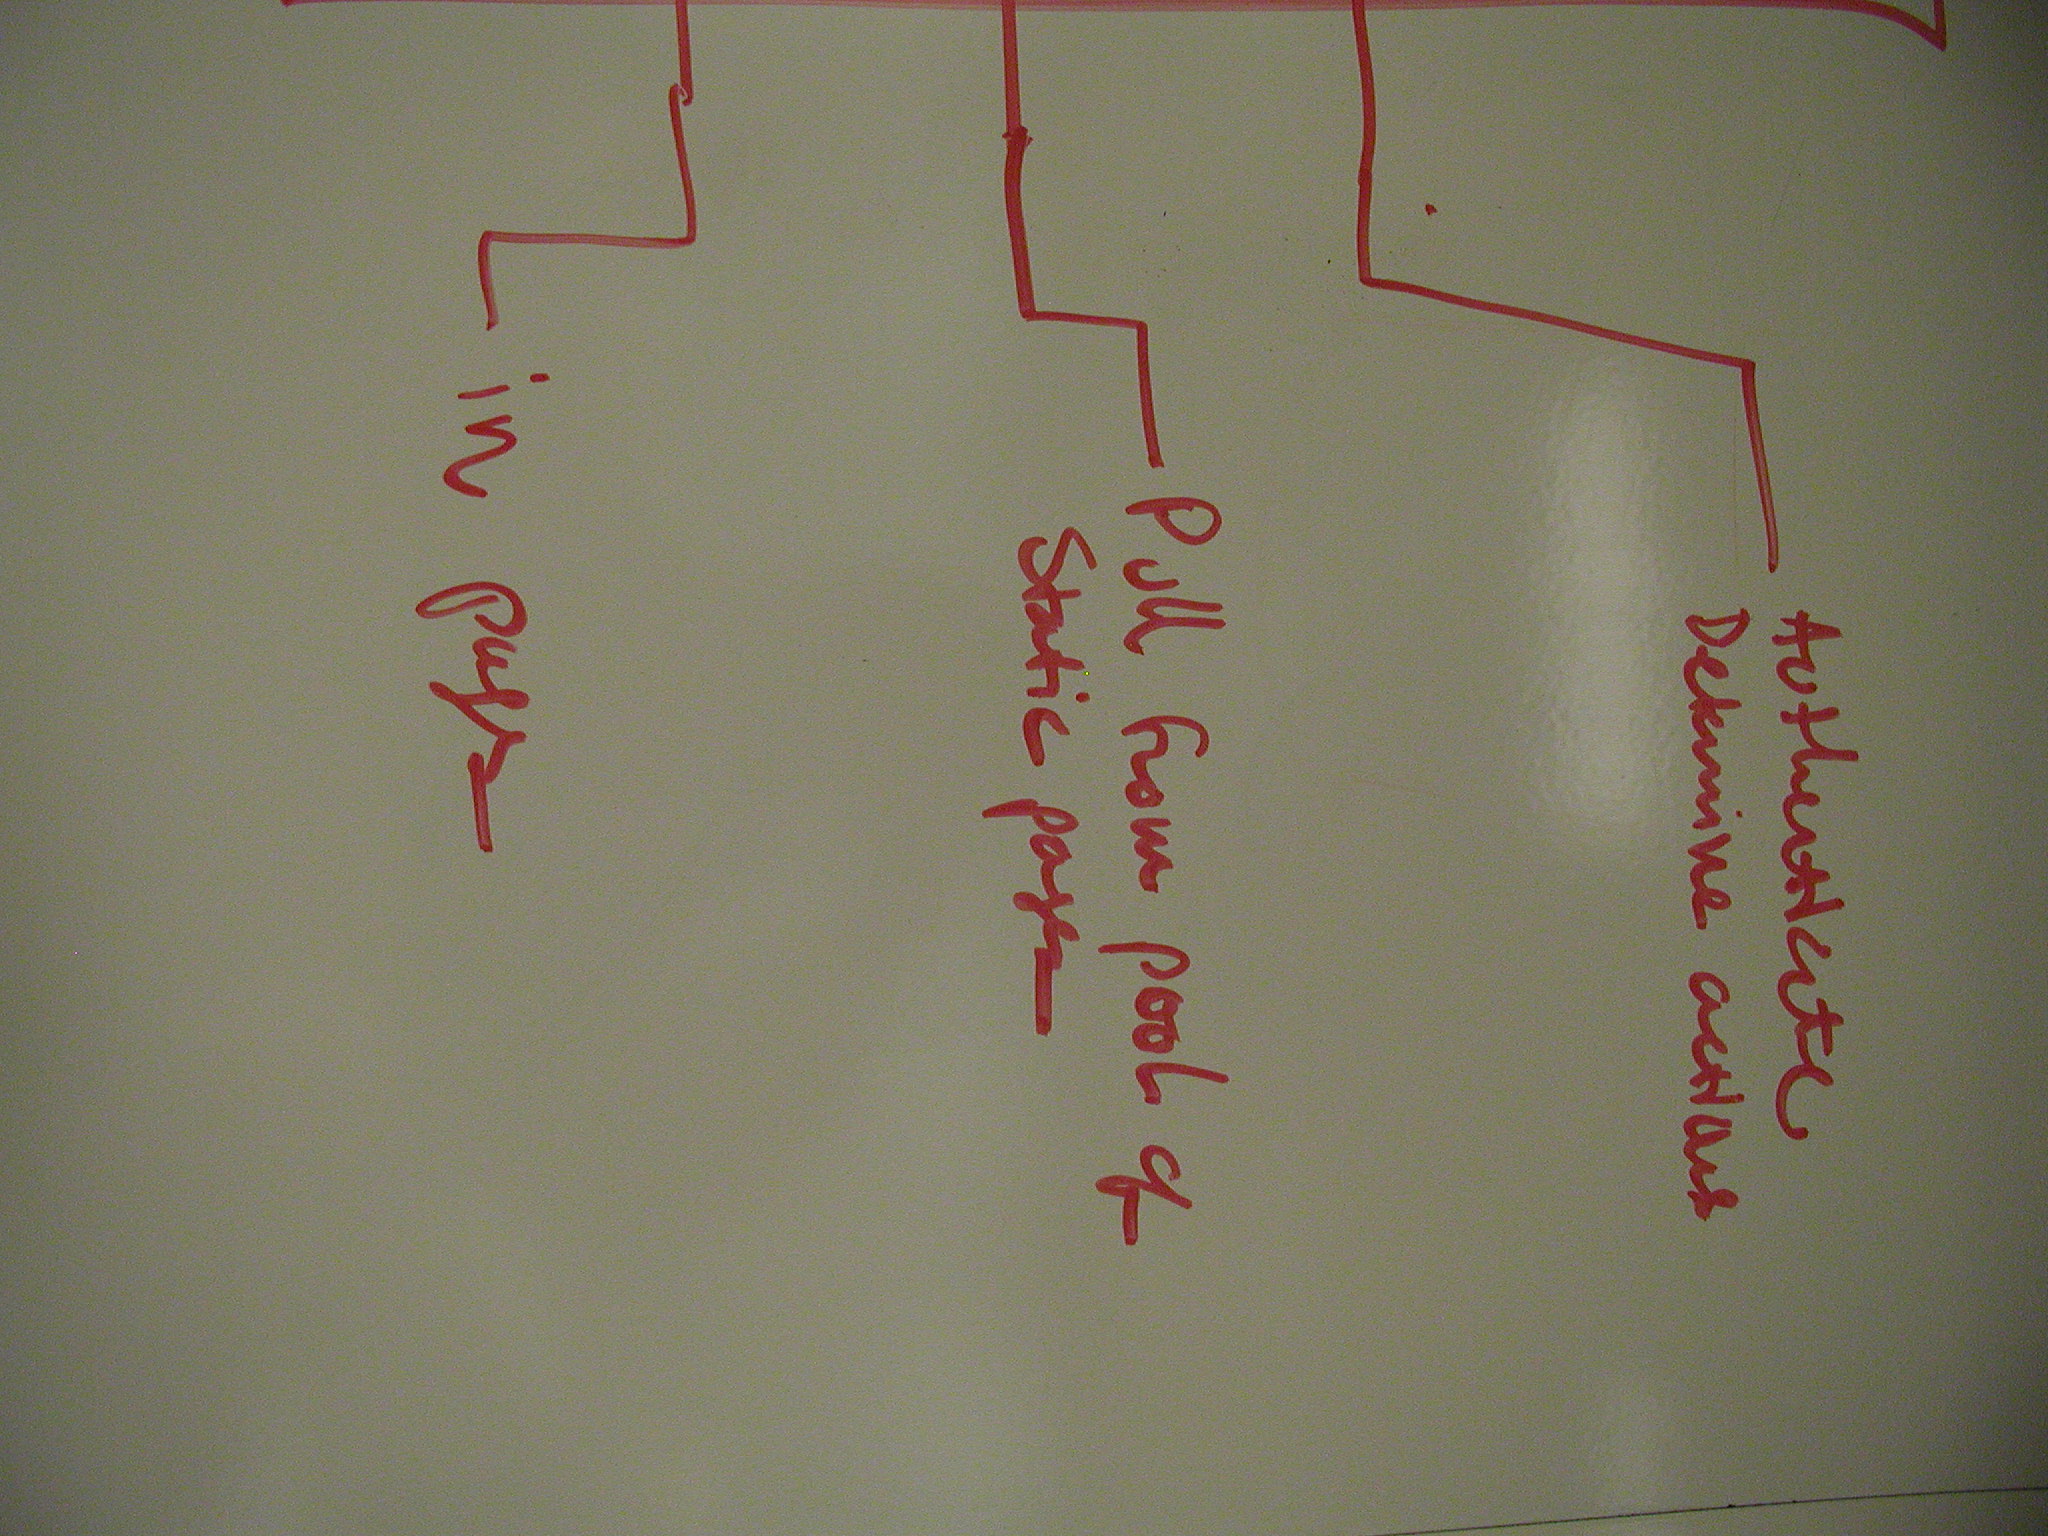 Authenticate
Determine actions
Pull from pool of
Static pages
in pages